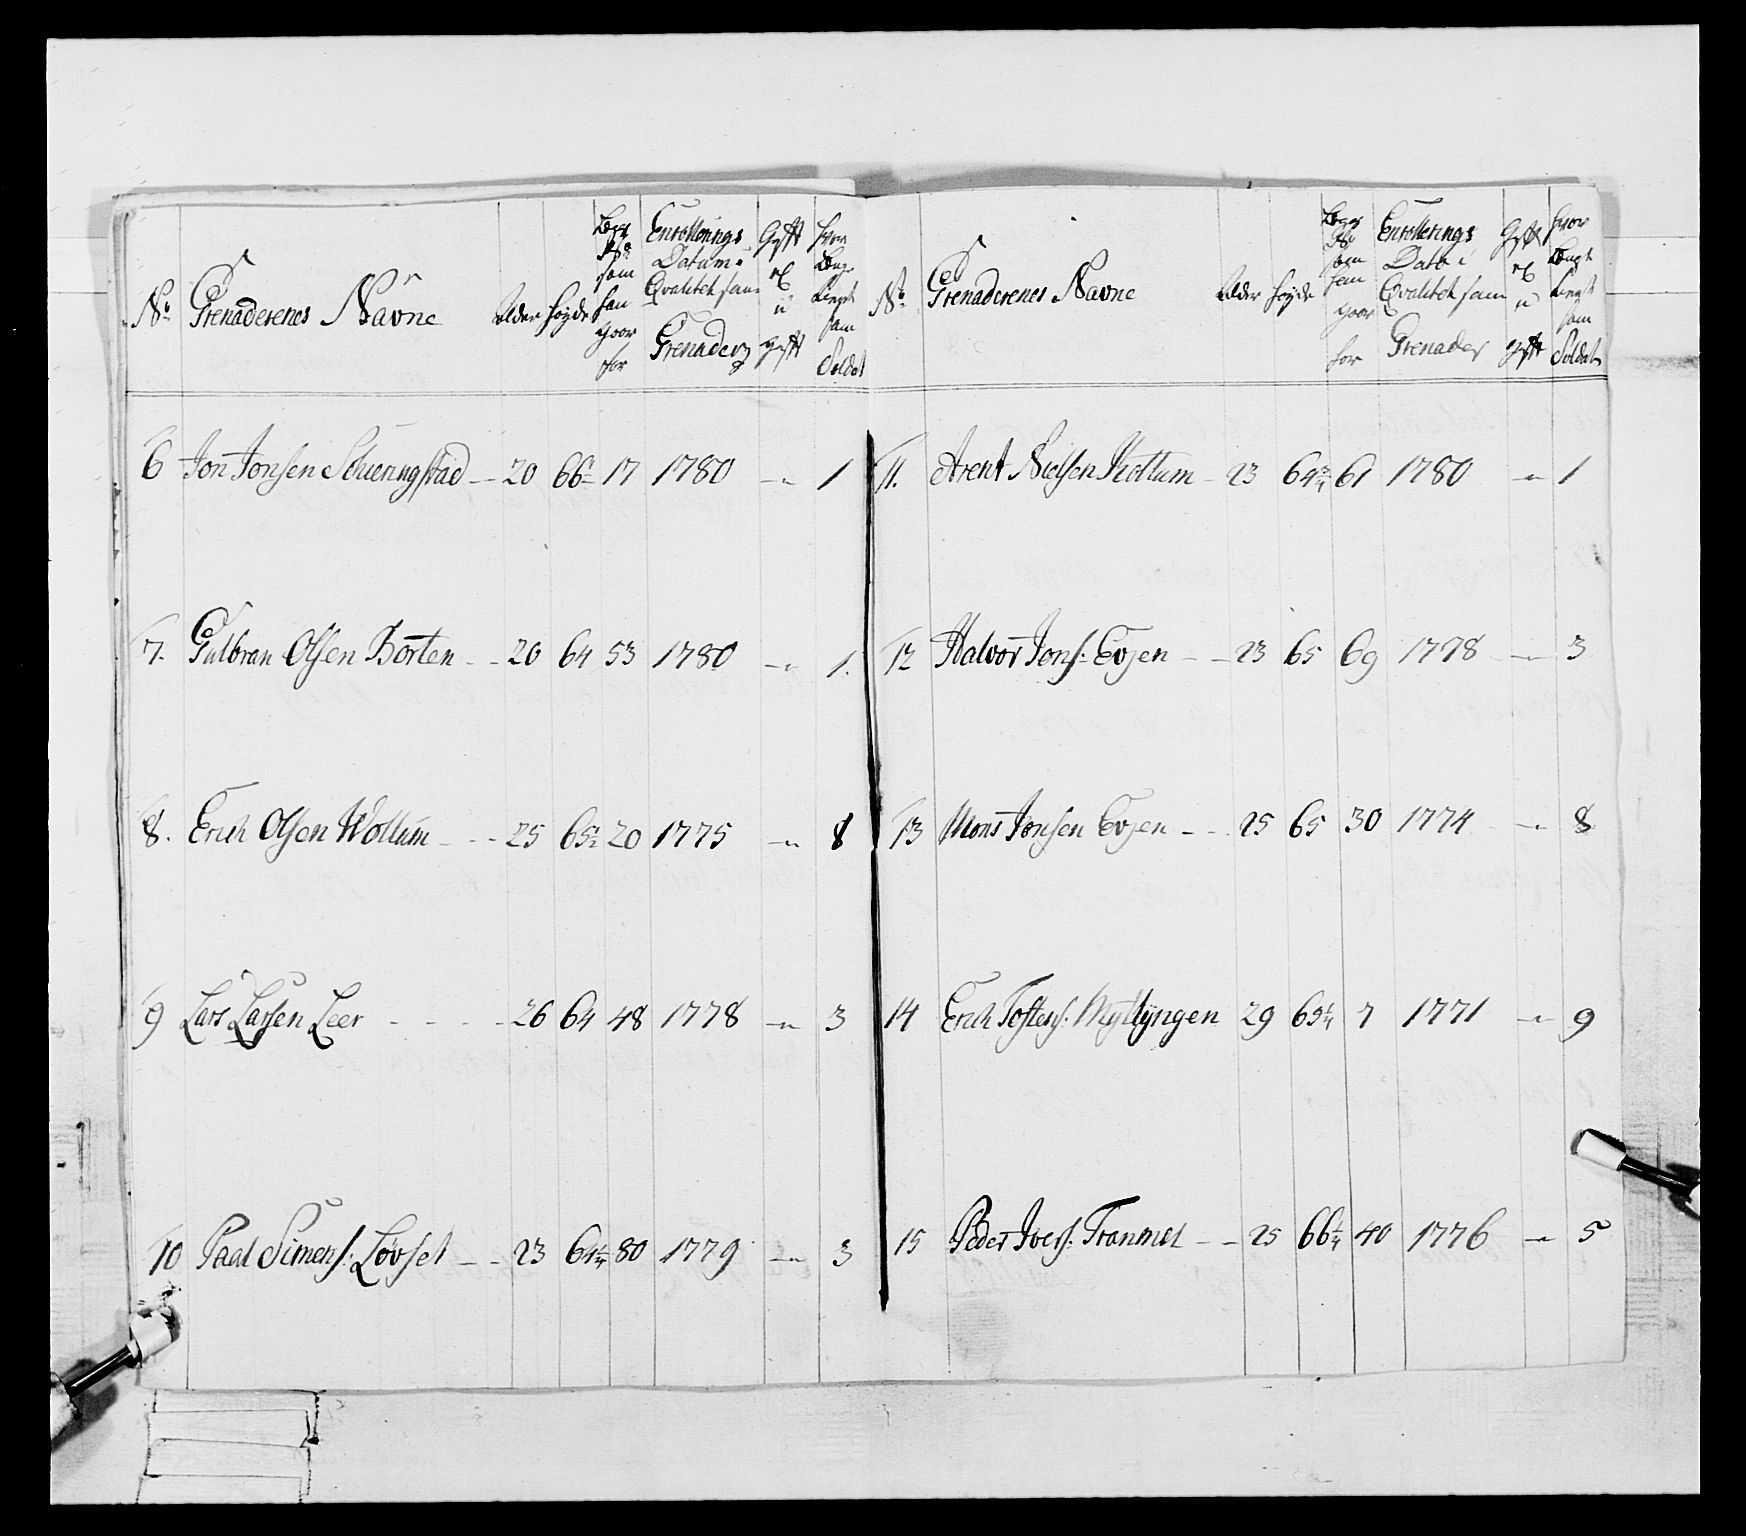 No Grenaderenes Navne Alder Høyde Lægs No som han goor for Enrollerings Datum i Qvalitet som Grenader Gift el u gift hvor Længe tient som Soldat
6 Jon Jonsen Schieringstad -- 20 66 17 1780 -"- 1
7. Gulbran Olsen Borten -- 20 64 53 1780 -"- 1.
8. Erich Olsen Wollum --- 25 65½ 20 1775 -"- 8
9 Lars Larsen Leer ---- 26 64 48 1778 -"- 3
10 Paal Simens: Løvset -- 23 64¼ 80 1779 -"- 3
No Grenaderenes Navne Alder Høyde Lægs No som han goor for Enrollerings Dato i Qvalitet som Grenader Gift el u gift hvor Længe tient som Soldat
11. Arent Nielsen Kottum - 23 64¾ 61 1780 -"- 1
12 Halvor Jons: Evjen -- 23 65 69 1778 -"- 3
13 Mons Jonsen Evjen -- 25 65 30 1774 -"- 8
14 Erich Toftens: Myklyngen 29 65¼ 7 1771 -"- 9
15 Peder Ivers: Tranmel -- 25 66¼ 40 1776 -"- 5